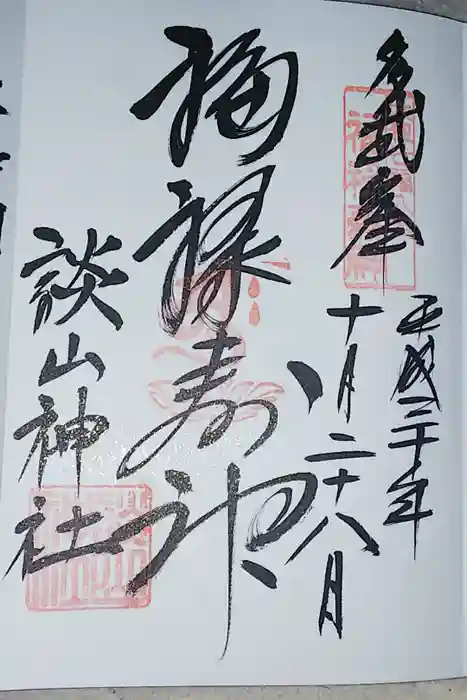 多武峯
平成三十年
十月二十八日
福禄寿神
談山神社